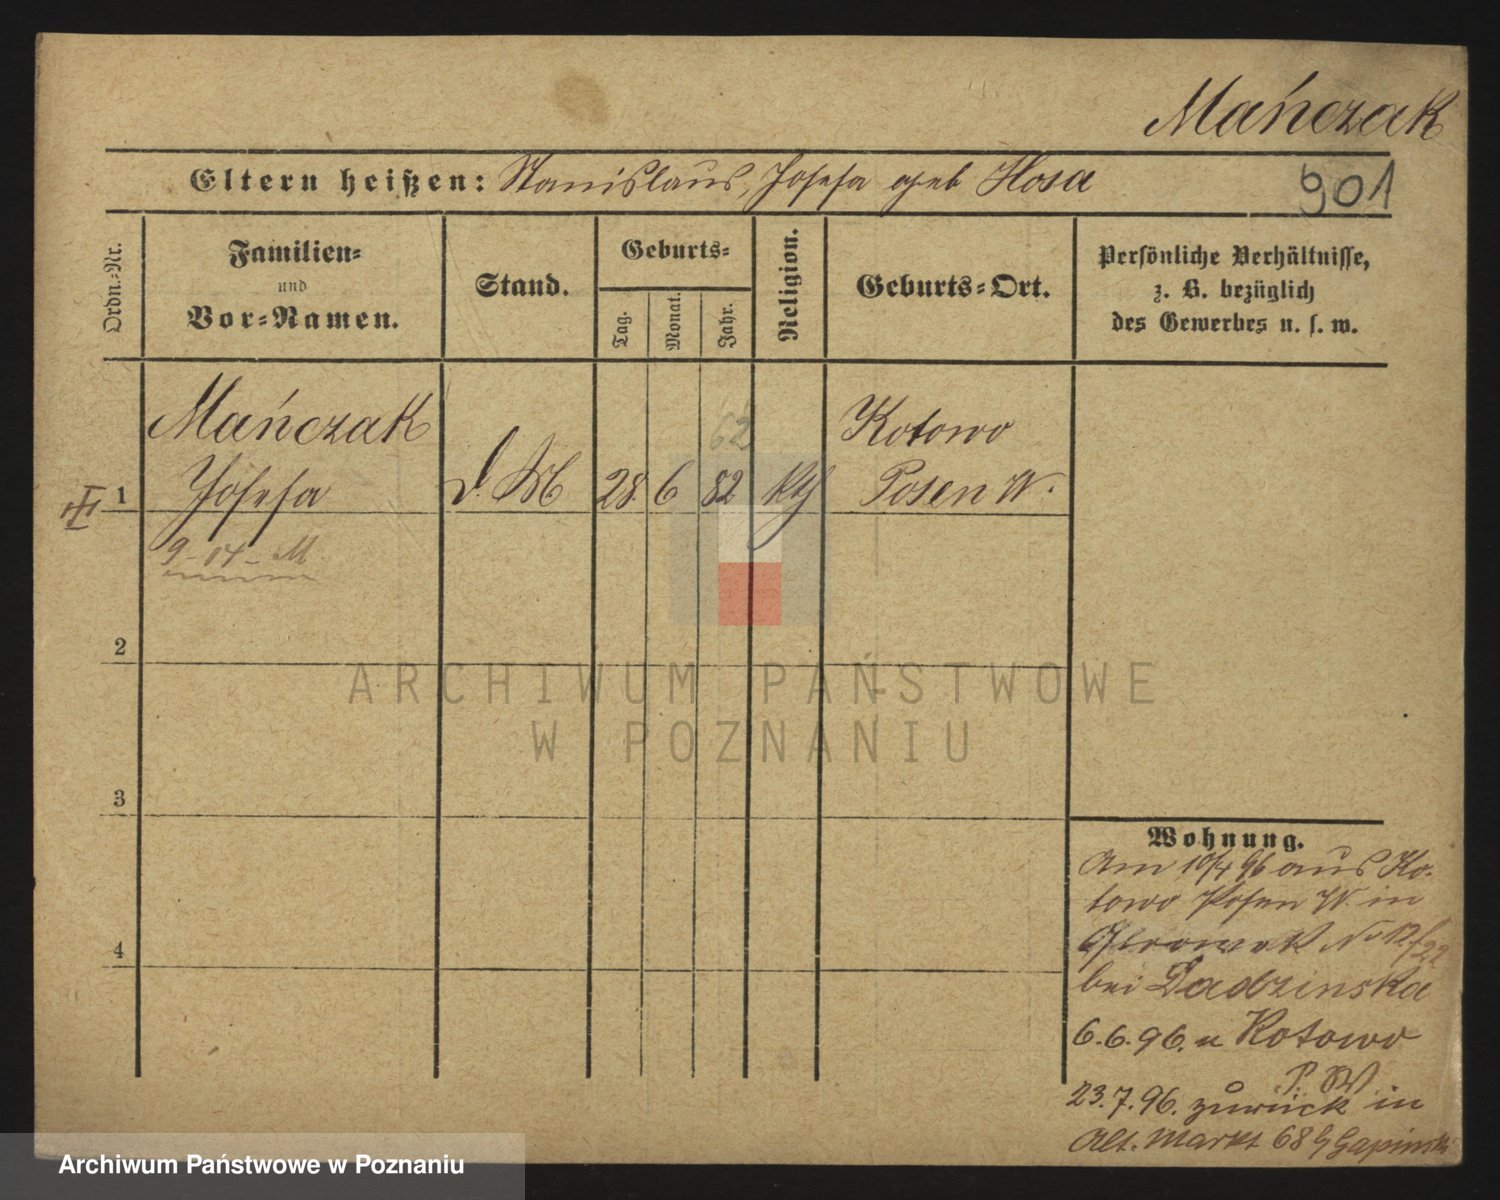 Mańczak
Eltern heißen: Stanislaus, Josefa geb Hosa
901
Ordn.-Nr.
Familien-
und
Vor-Namen.
Stand.
Geburts-
Tag.
Monat.
Jahr.
Religion.
Geburts-Ort.
Persönliche Verhältnisse,
z. B. bezüglich
des Gewerbes u. s. w.
1
Mańczak
Josefa
9-04-M.
d. M
28. 6 82
62
kth
Kotowo
Posen W.
2
3
4
Wohnung.
Am 10/4 96 aus Ko-
towo Posen W. in
No
bei Dadzinska
6.6.96. n Kotowo
P. W.
23.7.96. zurück in
Alt. Markt 68
ARCHIWUM PAŃSTWOWE
W POZNANIU
Archiwum Państwowe w Poznaniu